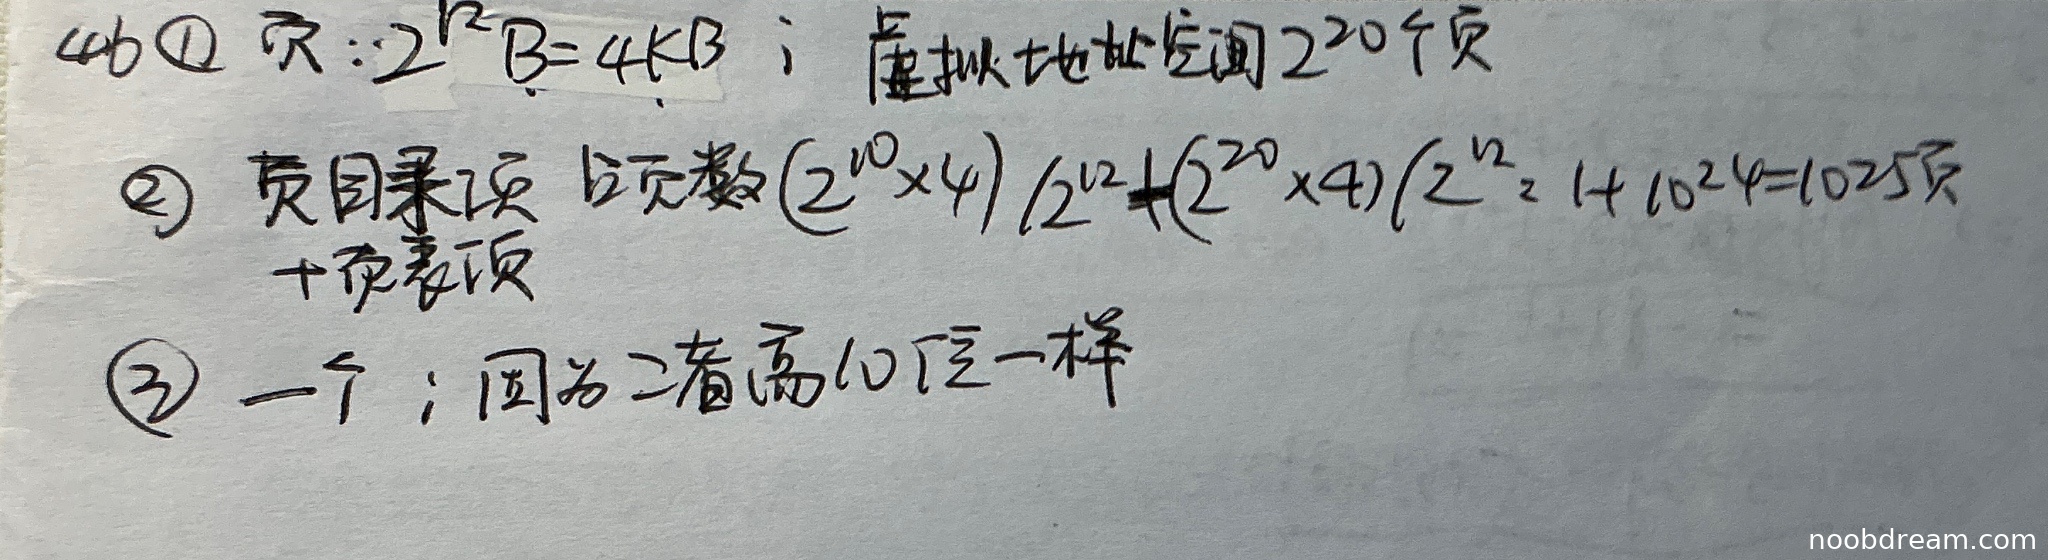 46 ① 页：2^12 B=4KB ； 虚拟地址空间2^20个页
② 页目录项 占页数(2^10×4)/2^12+(2^20×4)/2^12=1+1024=1025页
+页表项
③ 一个；因为二者高10位一样
noobdream.com